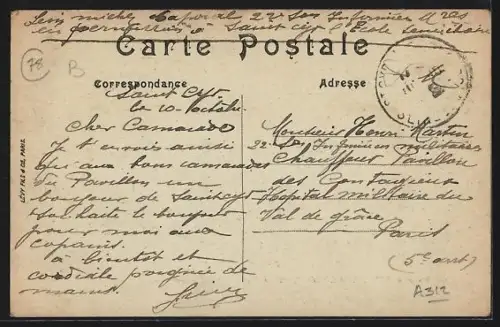 Caporal 22e Son Infirmiers Mres
en permission à Saint Cyr l'Ecole Seine
Carte Postale
78
B
Correspondance
Adresse
Saint Cyr
le 10 Octobre
Cher Camarade
Je t'envoie ainsi
qu'aux bons camarades
du Pavillon un
bonjour de Saint Cyr
souhaite le bonjour
pour moi aux
copains.
à bientôt et
cordiale poignée de
mains.
Monsieur Henri Martin
22e Son Infirmiers militaires
Chauffeur Pavillon
des Contagieux
Hôpital militaire du
Val de grâce
Paris
(5e arrt)
A312
LÉVY FILS & CIE, PARIS